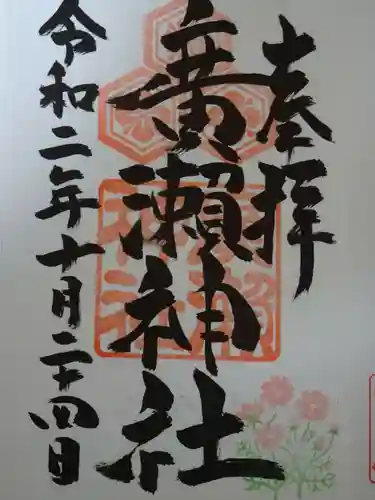 奉拝
廣瀬神社
廣瀬神社
令和二年十月二十四日